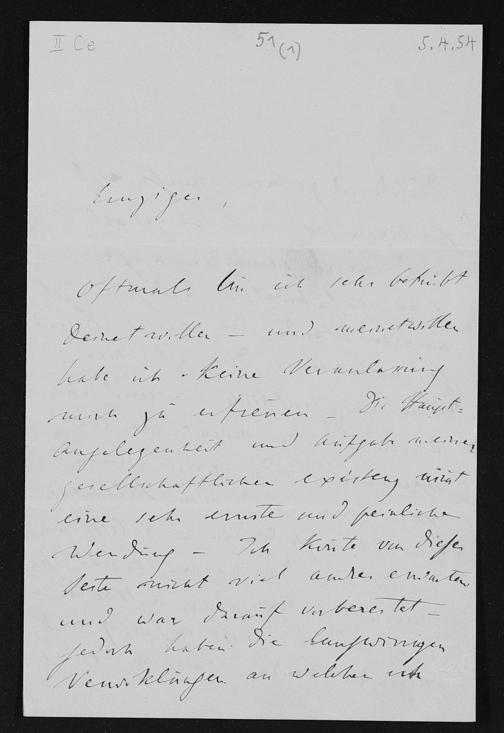 II Ce 51(1) 5.4.54
Einziger,
Oftmals bin ich sehr betrübt
Deinetwillen – und meinetwillen
habe ich keine Veranlassung
mich zu erfreuen – Die Haupt=
angelegenheit und Aufgabe meiner
gesellschaftlichen Existenz nimt
eine sehr ernste und peinliche
Wendung – Ich konte von dieser
Seite nicht viel andres erwarten
und war darauf vorbereitet –
jedoch haben die langwierigen
Verwiklungen an welchen ich